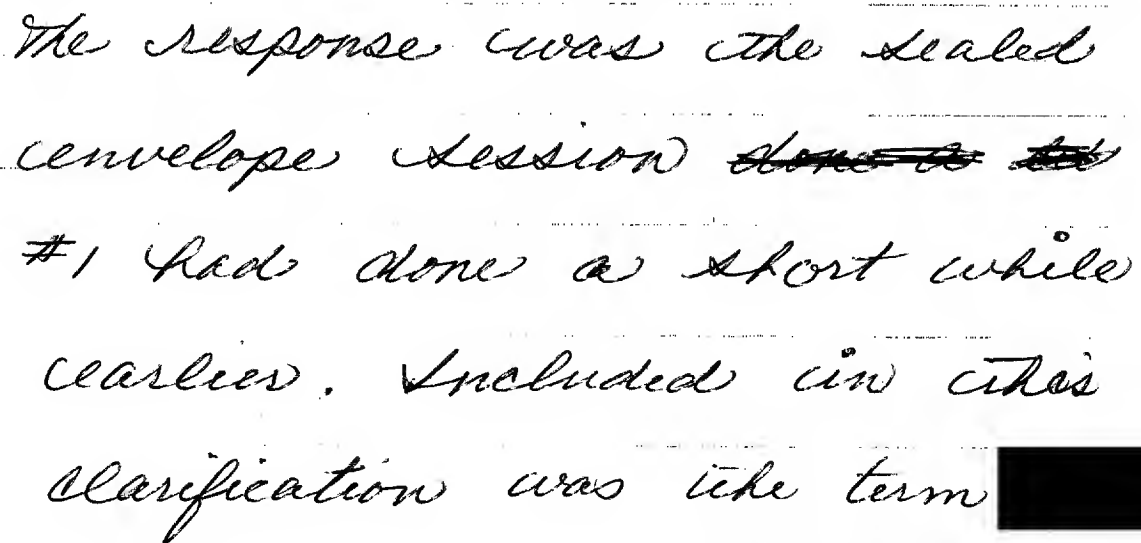 The response was the sealed
envelope session
#1 had done a short while
earlier. Included in this
clarification was the term